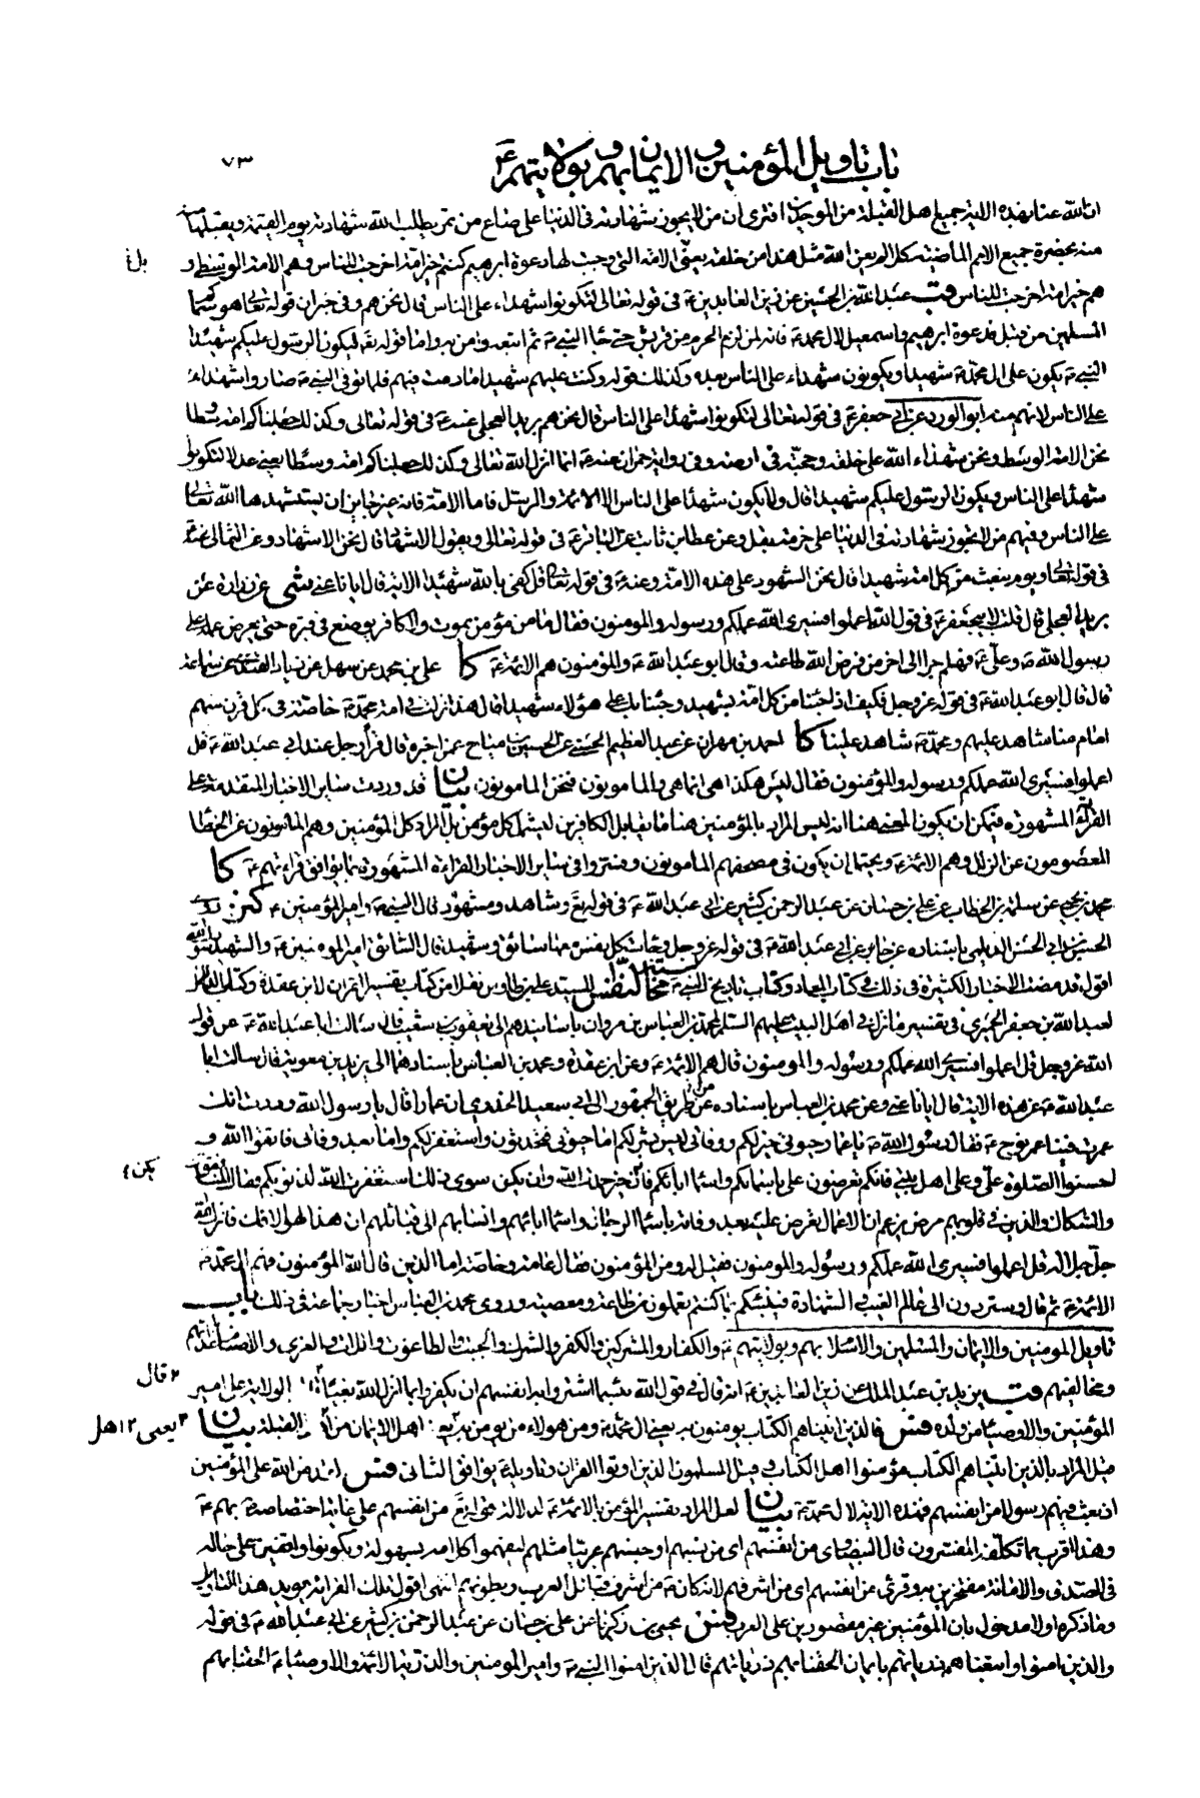 باب تاويل المؤمنين و الايمان بهم و بولايتهم ع ٧٣
ان الله عنا بهذه الاية جميع اهل القبلة من الموحدين افترى ان من لا يجوز شهادته فى الدنيا على صاع من تمر يطلب الله شهادته يوم القيمة و يقبلها
منه بحضرة جميع الامم الماضية كلا لم يعن الله مثل هذا من خلقه يعنى الامة التى وجبت لها دعوة ابرهيم كنتم خير امة اخرجت للناس و هم الامة الوسطى و
هم خير امة اخرجت للناس قب عبد الله بن الحسين عن زين العابدين ع فى قوله تعالى لتكونوا شهداء على الناس قال نحن هم و فى خبر ان قوله تعالى هو سماكم
المسلمين من قبل فدعوة ابرهيم و اسمعيل لال محمد ع فانه لمن لزم الحرم من قريش حتى جاء النبى ص ثم اتبعه و امن به و اما قوله تع ليكون الرسول عليكم شهيدا
النبى ص يكون على ال محمد ص شهيدا و يكونون شهداء على الناس بعده و كذلك قوله و كنت عليهم شهيدا ما دمت فيهم فلما توفى النبى ص صاروا شهداء
على الناس لانهم منه ابو الورد عن ابى جعفر ع فى قوله تعالى لتكونوا شهداء على الناس قال نحن هم بريد العجلى عنه ع فى قوله تعالى و كذلك جعلناكم امة وسطا
نحن الامة الوسط و نحن شهداء الله على خلقه و حجته فى ارضه و فى رواية حمران عنه ع انما انزل الله تعالى و كذلك جعلناكم امة وسطا يعنى عدلا لتكونوا
شهداء على الناس و يكون الرسول عليكم شهيدا قال و لا يكون شهداء على الناس الا الائمة و الرسل فاما الامة فانه غير جايز ان يستشهدها الله تعالى
على الناس و فيهم من لا يجوز شهادته فى الدنيا على حزمة بقل و عن عطا بن ثابت عن الباقر ع فى قوله تعالى و يقول الاشهاد قال نحن الاشهاد و عن الثمالى عنه
فى قوله تعالى و يوم نبعث من كل امة شهيدا قال نحن الشهود على هذه الامة و عنه ع فى قوله تعالى قل كفى بالله شهيدا الاية قال ايانا عنى شى عن زرارة عن
بريد العجلى قال قلت لابى جعفر ع فى قول الله اعملوا فسيرى الله عملكم و رسوله و المؤمنون فقال ما من مؤمن يموت و لا كافر يوضع فى قبره حتى يعرض عمله على
رسول الله ص و على ع فهلم جرا الى اخر من فرض الله طاعته و قال ابو عبد الله ع و المؤمنون هم الائمة ع كا على بن محمد عن سهل عن زياد القندى عن سماعة
قال قال ابو عبد الله ع فى قوله عز و جل فكيف اذا جئنا من كل امة بشهيد و جئنا بك على هؤلاء شهيدا قال هذا نزلت فى امة محمد ص خاصة فى كل قرن منهم
امام منا شاهد عليهم و محمد ص شاهد علينا كا احمد بن مهران عن عبد العظيم الحسنى عن الحسين بن مياح عمن اخبره قال قرأ رجل عند ابى عبد الله ع قل
اعملوا فسيرى الله عملكم و رسوله و المؤمنون فقال ليس هكذا هى انما هى و المامونون فنحن المامونون بيان قد وردت ساير الاخبار المتقدمة على
القراءة المشهورة فيمكن ان يكون المعنى هنا انه ليس المراد بالمؤمنين هنا ما يقابل الكافرين ليشمل كل مؤمن بل المراد كمل المؤمنين و هم المامونون عن الخطا
المعصومون عن الزلل و هم الائمة ع و يحتمل ان يكون فى مصحفهم المامونون و فسروا فى ساير الاخبار القراءة المشهورة بما يوافق قراءتهم ع كا
محمد بن يحيى عن سلمة بن الخطاب عن على بن حسان عن عبد الرحمن بن كثير عن ابى عبد الله ع فى قوله تع و شاهد و مشهود قال النبى ص و امير المؤمنين ع كنز روى
الحسن بن ابى الحسن الديلمى باسناده عن جابر عن ابى عبد الله ع فى قوله عز و جل و جاءت كل نفس معها سائق و شهيد قال السائق امير المؤمنين ع و الشهيد رسول الله
اقول قد مضت الاخبار الكثيرة فى ذلك فى كتاب المعاد و كتاب تاريخ النبى ص محاسبة النفس للسيد على بن طاوس نقلا من كتاب تفسير القران لابن عقدة و كتاب الدلائل
لعبد الله بن جعفر الحميرى فى تفسير ما نزل فى اهل البيت عليهم السلم لمحمد بن العباس بن مروان باسانيدهم الى يعقوب بن شعيب قال سالت ابا عبد الله ع عن قول
الله عز و جل قل اعملوا فسيرى الله عملكم و رسوله و المؤمنون قال هم الائمة ع و عن ابن عقدة و محمد بن العباس باسنادهما الى بريد بن معوية قال سالت ابا
عبد الله ع عن هذه الاية قال ايانا عنى و عن محمد بن العباس باسناده من طريق الجمهور الى ابى سعيد الخدرى ان عمارا قال يا رسول الله وددت انك
عمرت فينا عمر نوح ع فقال رسول الله ص يا عمار حيوتى خير لكم و وفاتى ليس بشر لكم اما حيوتى فتحدثون و استغفر لكم و اما بعد وفاتى فاتقوا الله و
احسنوا الصلوة على و على اهل بيتى فانكم تعرضون على باسمائكم و اسماء ابائكم فان يكن خيرا حمدت الله و ان يكن سوى ذلك استغفرت الله لذنوبكم فقال المنافقون
و الشكاك و الذين فى قلوبهم مرض يزعم ان الاعمال تعرض عليه بعد وفاته باسماء الرجال و اسماء ابائهم و انسابهم الى قبائلهم ان هذا لهو الافك فانزل الله
جل جلاله قل اعملوا فسيرى الله عملكم و رسوله و المؤمنون فقيل له و من المؤمنون فقال عامة و خاصة اما الذين قال الله المؤمنون فهم ال محمد ص
الائمة ع ثم قال و ستردون الى عالم الغيب و الشهادة فينبئكم بما كنتم تعملون من طاعة و معصية و روى محمد بن العباس اخبار جماعة فى ذلك باب
تاويل المؤمنين و الايمان و المسلمين و الاسلام بهم و بولايتهم ع و الكفار و المشركين و الكفر و الشرك و الجبت و الطاغوت و اللات و العزى و الاصنام باعدائهم
و مخالفيهم قب يزيد بن عبد الملك عن زين العابدين ع انه قال فى قول الله بئسما اشتروا به انفسهم ان يكفروا بما انزل الله بغيا الولاية على امير
المؤمنين و الاوصيا من ولده فس فالذين اتيناهم الكتاب يؤمنون به يعنى ال محمد ص و من هؤلاء من يؤمن به اهل الايمان من القبلة بيان
قيل المراد بالذين اتيناهم الكتاب مؤمنوا اهل الكتاب و قيل المسلمون الذين اوتوا القران و تاويله ع يوافق الثانى فس لقد من الله على المؤمنين
اذ بعث فيهم رسولا من انفسهم فهذه الاية لال محمد ص بيان لعل المراد تفسير المؤمنين بالائمة ع لدلالة قوله تع من انفسهم على غاية اختصاصه ع بهم ع
و هذا اقرب مما تكلفه المفسرون قال البيضاوى من انفسهم اى من نسبهم او جنسهم عربيا مثلهم ليفهموا كلامه بسهولة و يكونوا واقفين على حاله
فى الصدق و الامانة مفتخرين به و قرئ من انفسهم اى من اشرفهم لانه كان ص من اشرف قبائل العرب و بطونهم انتهى اقول تلك القراءة يؤيد هذا التاويل
و ما ذكره اولا مدخول بان المؤمنين غير مقصورين على العرب فس يحيى بن زكريا عن على بن حسان عن عبد الرحمن بن كثير عن ابى عبد الله ع فى قوله
و الذين امنوا و اتبعناهم ذرياتهم بايمان الحقنا بهم ذرياتهم قال الذين امنوا النبى ص و امير المؤمنين و الذرية الائمة و الاوصياء ع الحقنا بهم
بل غ
يكن ٤
٢ قال
٣ يعنى ١٢ اهل